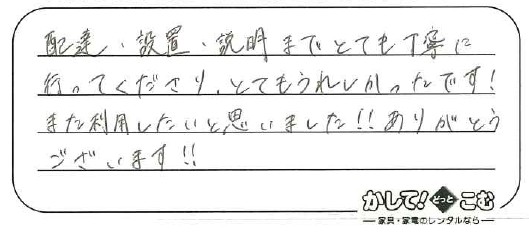 配達・設置・説明までとても丁寧に
行ってくださり、とてもうれしかったです!
また利用したいと思いました!!ありがとう
ございます!!
かして!どっとこむ
家具・家電のレンタルなら